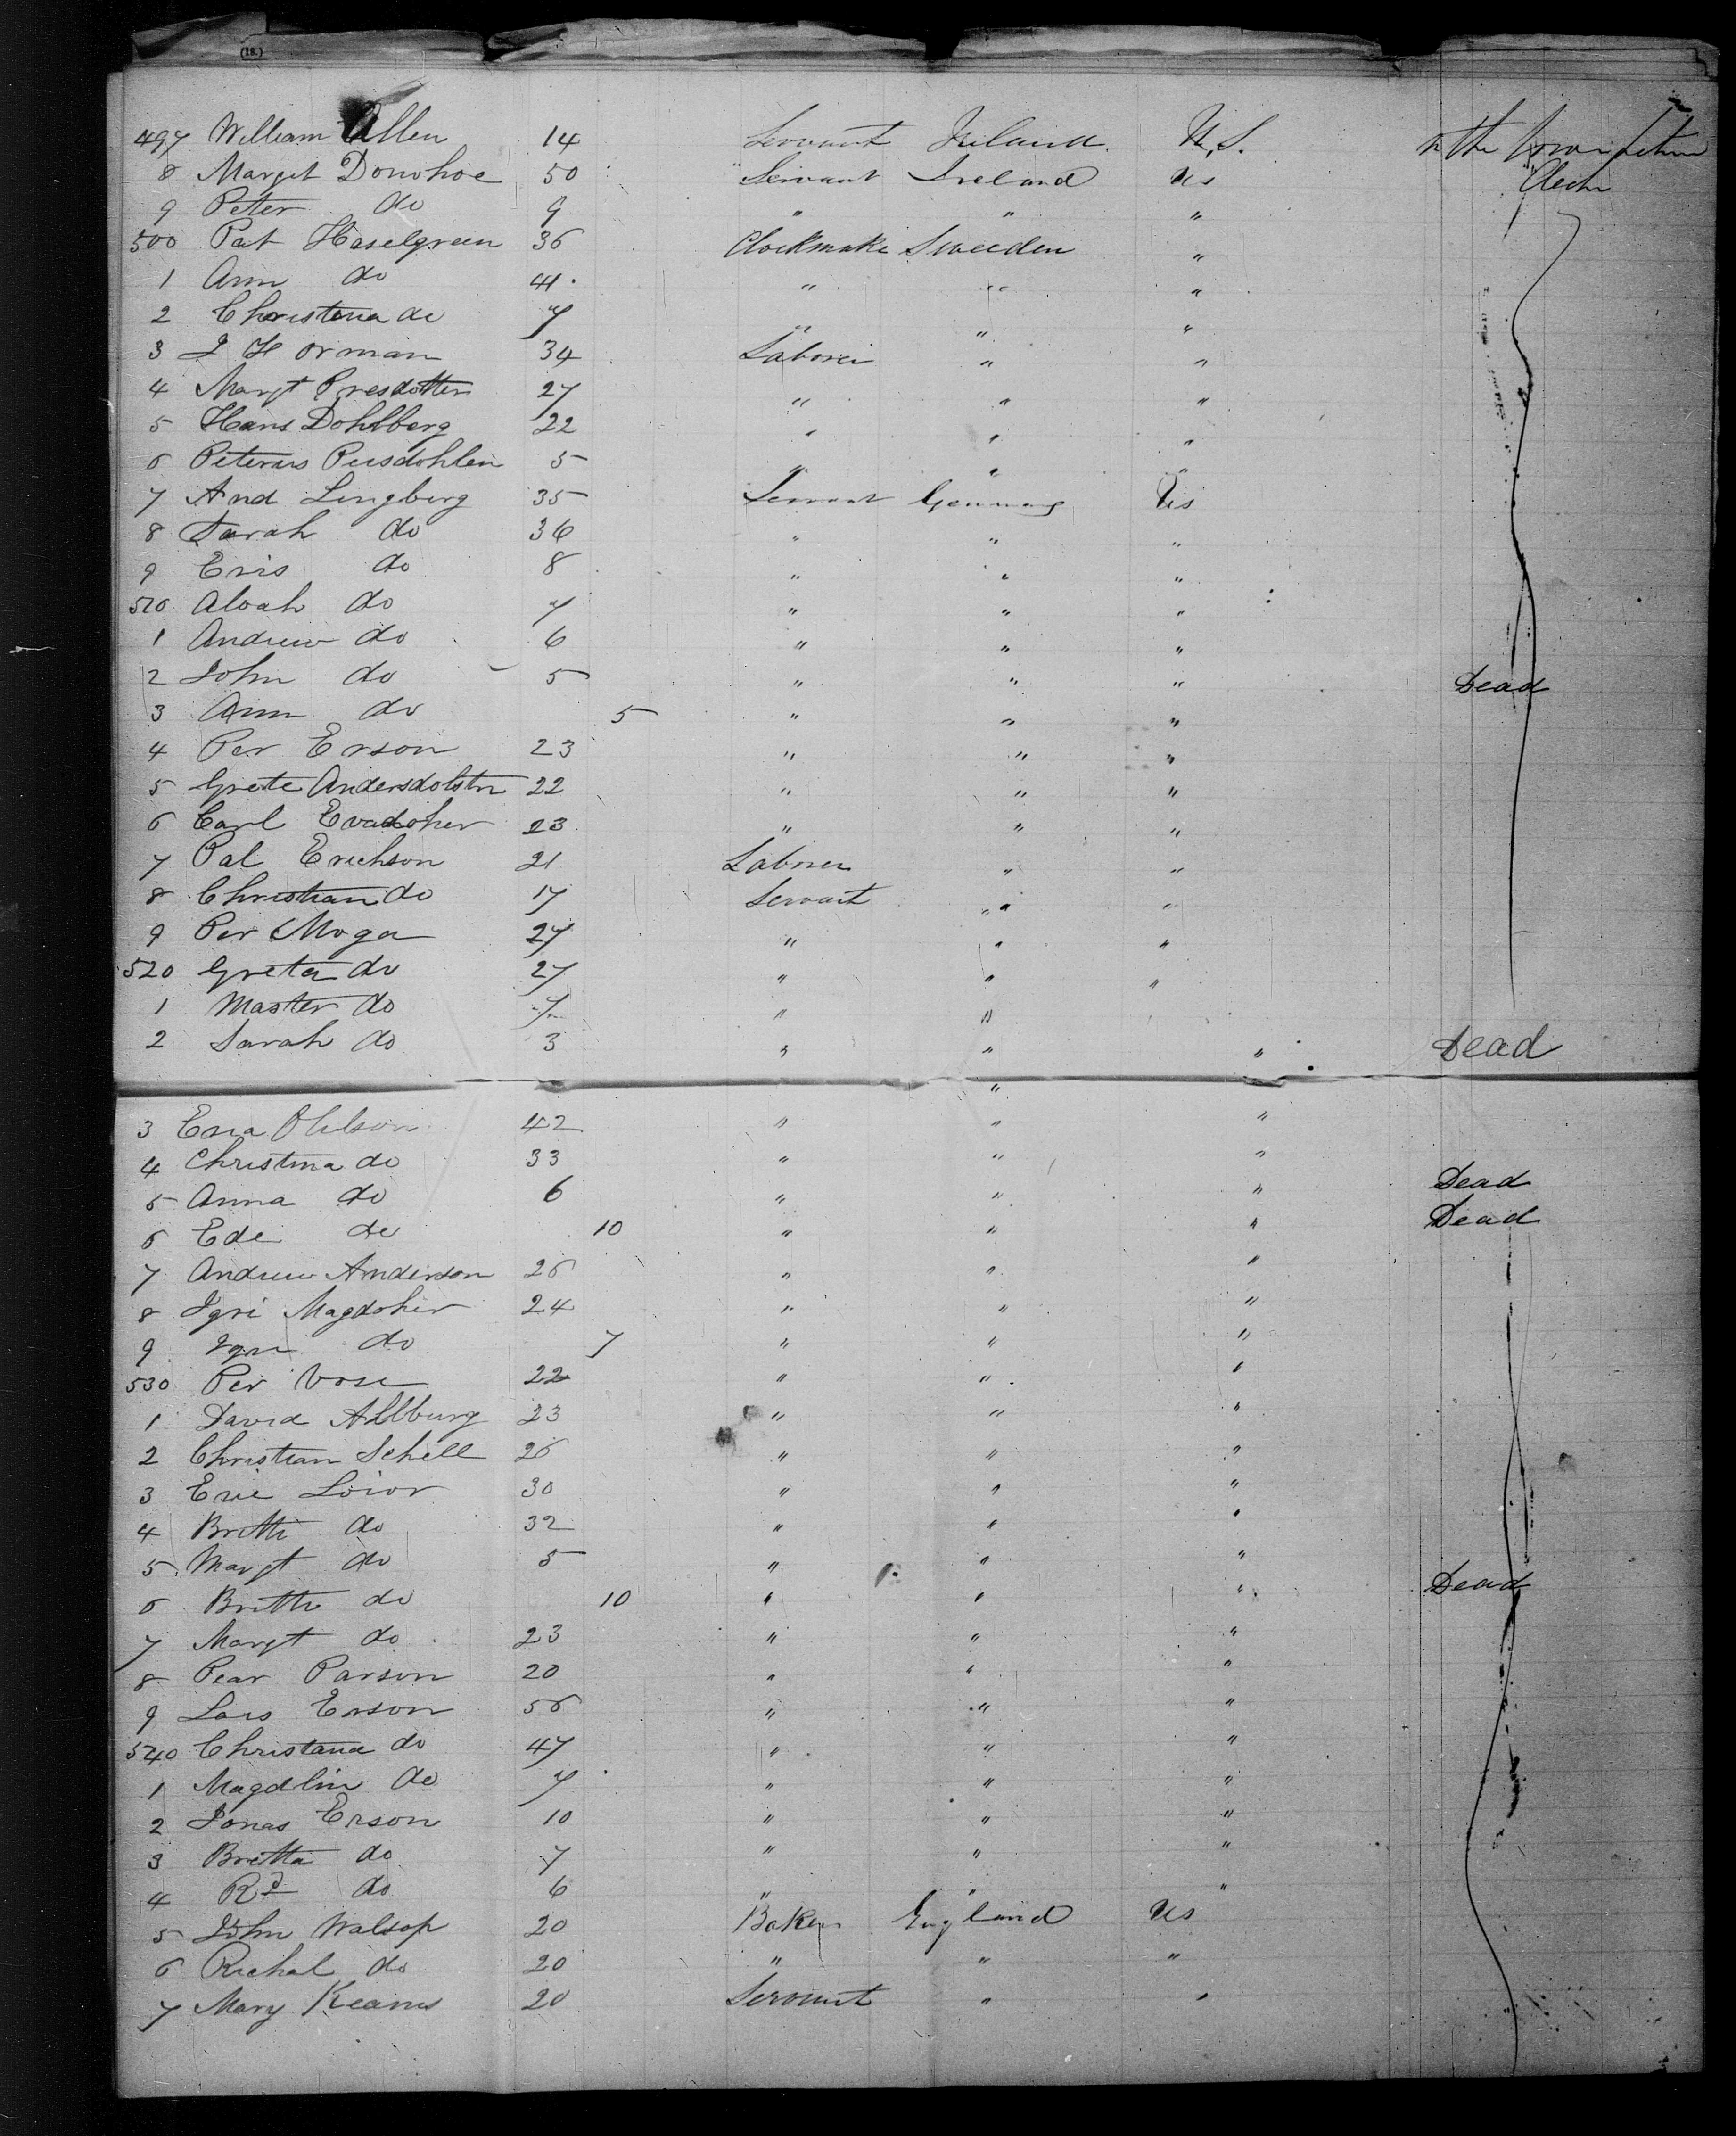 (18.)
497 William Allen 14 Servant Ireland U.S. In the
8 Margt Donohoe 50 Servant Ireland Us
9 Peter do 9 " " "
500 Pat Haselgreen 36 Clockmake Sweeden "
1 Ann do 41 " " "
2 Christena do 7 " " "
3 J Horman 34 Laborer " "
4 Margt Presdotter 27 " " "
5 Hans Dohlberg 22 " " "
6 Peterus 5 " " "
7 And Lingberg 35 Servant Germany Us
8 Sarah do 36 " " "
9 Eris do 8 " " "
510 Aloah do 7 " " "
1 Andrew do 6 " " "
2 John do 5 " " " Dead
3 Ann do 5 " " "
4 Per Erson 23 " " "
5 Grete Andersdolstn 22 " " "
6 Carl Evadoher 23 " " "
7 Pal Erichson 21 Laborer " "
8 Christian do 17 Servant " "
9 Per Moga 27 " " "
520 Greta do 27 " " "
1 Master do 7 " "
2 Sarah do 3 " " " Dead
"
3 Eria Ohlson 42 " " "
4 Christina do 33 " " "
5 Anna do 6 " " " Dead
6 Ede do 10 " " " Dead
7 Andrew Anderson 26 " " "
8 Igri Magdoher 24 " " "
9 Igri do 7 " " "
530 Per 22 " " "
1 David Allburg 23 " " "
2 Christian Schell 26 " " "
3 Erie Loior 30 " " "
4 Britti do 32 " " "
5 Margt do 5 " " "
6 Britti do 10 " " " Dead
7 Margt do 23 " " "
8 Pear Parson 20 " " "
9 Lars Erson 56 " " "
540 Christana do 47 " " "
1 Magdlin do 7 " " "
2 Jonas Erson 10 " " "
3 Britta do 7 " " "
4 Rd do 6 " " "
5 John Walsop 20 Baker England Us
6 Richal do 20 " " "
7 Mary Kearns 20 Servant " "